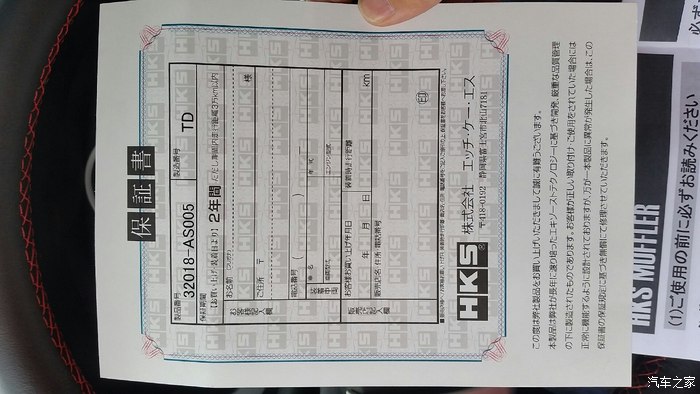 保証書
製品番号
32018-AS005
製造番号
TD
保証期間
【お買い上げ/装着日より】2年間(ただし期間内走行距離3万km以内)
お客様記入欄
お名前(フリガナ)
様
ご住所 〒
電話番号( )
装着車両
車名
年式
自動車型式
エンジン型式
販売店記入欄
お客様お買い上げ年月日
年 月 日
装着時走行距離
km
販売店名/住所/電話番号
印
HKS
株式会社 エッチ・ケー・エス
〒418-0192 静岡県富士宮市北山7181
この度は弊社製品をお買い上げいただきまして誠に有難うございます。
本製品は弊社が長年に渡り培ったエキゾーストテクノロジーに基づき開発、厳重な品質管理
の下に製造されたものであります。お客様が正しい取り付け・ご使用をされていた場合には
正常に機能するように設計されておりますが、万が一本製品に異常が発生した場合は、この
保証書の保証規定に基づき無償にて修理させていただきます。
HKS MUFFLER
(1)ご使用の前に必ずお読みください
必ず
汽车之家